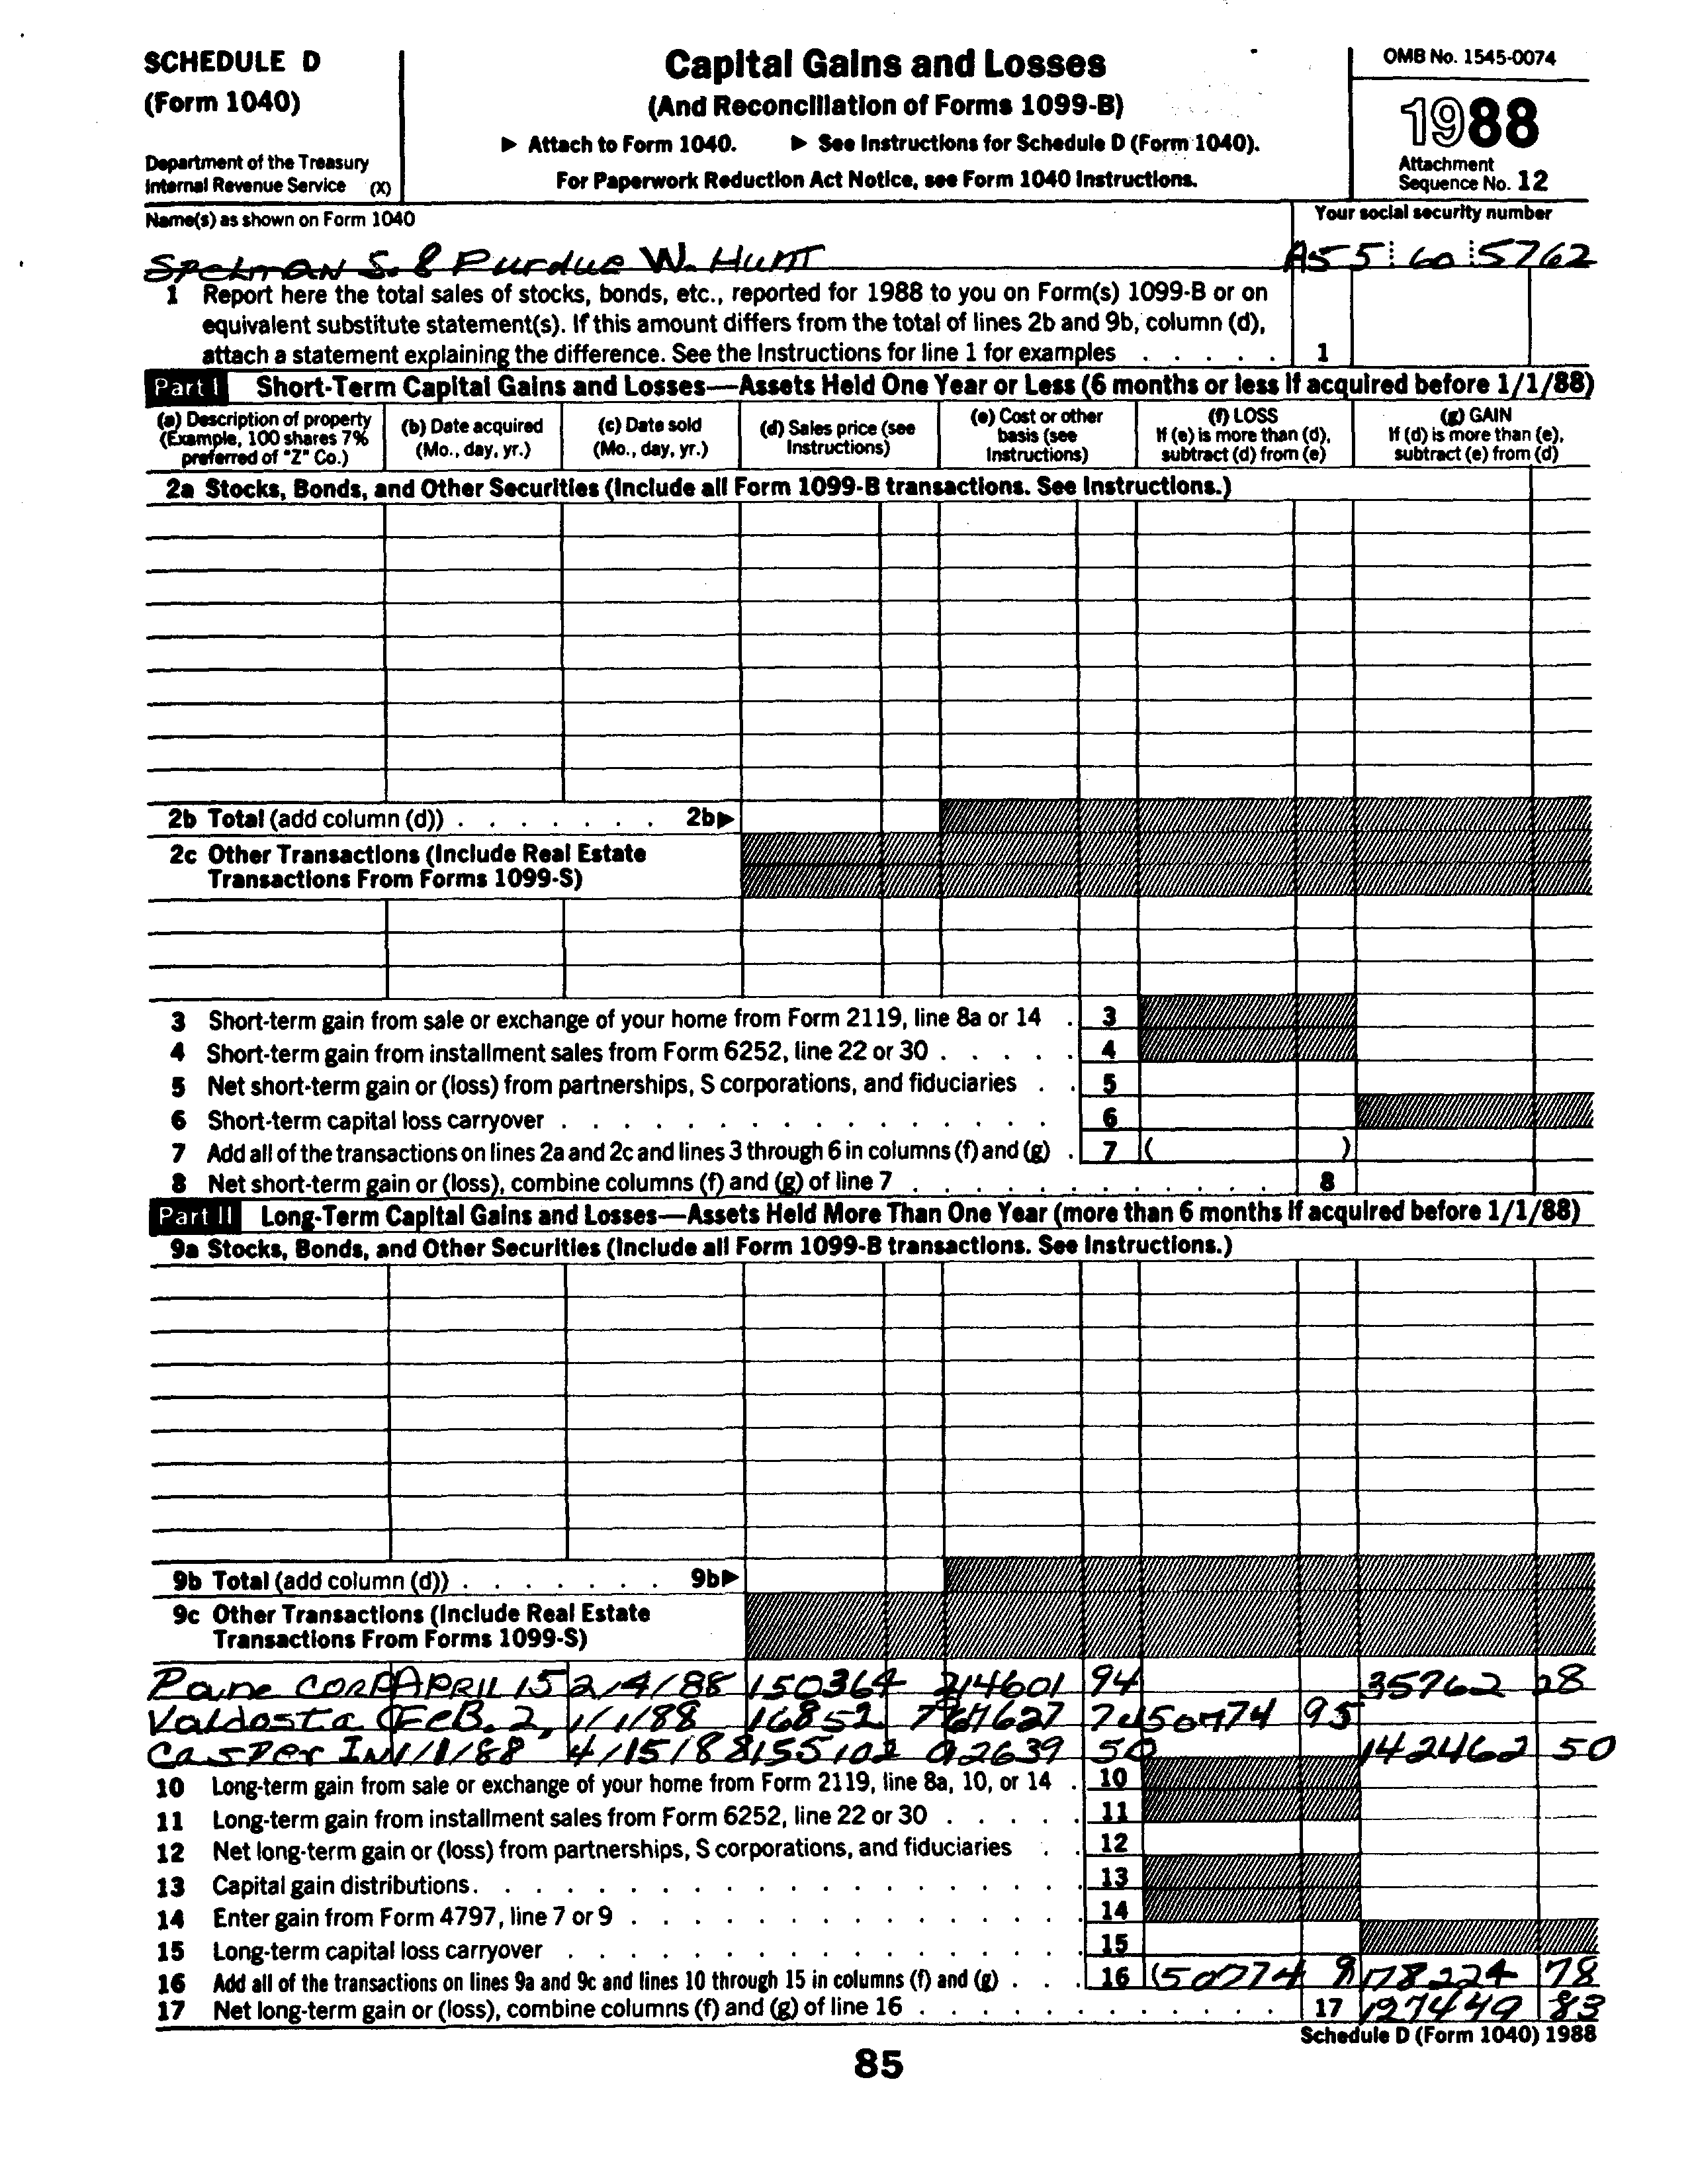 SCHEDULE D
(Form 1040)
Department of the Treasury
Internal Revenue Service (X)
Capital Gains and Losses
(And Reconciliation of Forms 1099-B)
▶ Attach to Form 1040. ▶ See Instructions for Schedule D (Form 1040).
For Paperwork Reduction Act Notice, see Form 1040 Instructions.
OMB No. 1545-0074
1988
Attachment
Sequence No. 12
Name(s) as shown on Form 1040
Your social security number
Spelman S. & Purdue W. Hunt
A55 60 5762
1 Report here the total sales of stocks, bonds, etc., reported for 1988 to you on Form(s) 1099-B or on
equivalent substitute statement(s). If this amount differs from the total of lines 2b and 9b, column (d),
attach a statement explaining the difference. See the Instructions for line 1 for examples . . . . . 1
Part I Short-Term Capital Gains and Losses—Assets Held One Year or Less (6 months or less if acquired before 1/1/88)
(a) Description of property
(Example, 100 shares 7%
preferred of "Z" Co.)
(b) Date acquired
(Mo., day, yr.)
(c) Date sold
(Mo., day, yr.)
(d) Sales price (see
Instructions)
(e) Cost or other
basis (see
Instructions)
(f) LOSS
If (e) is more than (d),
subtract (d) from (e)
(g) GAIN
If (d) is more than (e),
subtract (e) from (d)
2a Stocks, Bonds, and Other Securities (Include all Form 1099-B transactions. See Instructions.)
2b Total (add column (d)) . . . . . . . 2b▶
2c Other Transactions (Include Real Estate
Transactions From Forms 1099-S)
3 Short-term gain from sale or exchange of your home from Form 2119, line 8a or 14 . 3
4 Short-term gain from installment sales from Form 6252, line 22 or 30 . . . . . 4
5 Net short-term gain or (loss) from partnerships, S corporations, and fiduciaries . . 5
6 Short-term capital loss carryover . . . . . . . . . . . . . . . . 6
7 Add all of the transactions on lines 2a and 2c and lines 3 through 6 in columns (f) and (g) . 7 ( )
8 Net short-term gain or (loss), combine columns (f) and (g) of line 7 . . . . . . . . . . . . 8
Part II Long-Term Capital Gains and Losses—Assets Held More Than One Year (more than 6 months if acquired before 1/1/88)
9a Stocks, Bonds, and Other Securities (Include all Form 1099-B transactions. See Instructions.)
9b Total (add column (d)) . . . . . . . 9b▶
9c Other Transactions (Include Real Estate
Transactions From Forms 1099-S)
Pane CORP APRIL 15 2/4/88 150364 94 35762 28
Valdosta FEB. 2, 1/1/88 16852 50774 95
Casper IN 1/1/88 4/15/88 155102 12639 50 142462 50
10 Long-term gain from sale or exchange of your home from Form 2119, line 8a, 10, or 14 . 10
11 Long-term gain from installment sales from Form 6252, line 22 or 30 . . . . . 11
12 Net long-term gain or (loss) from partnerships, S corporations, and fiduciaries . . 12
13 Capital gain distributions. . . . . . . . . . . . . . . . . . . 13
14 Enter gain from Form 4797, line 7 or 9 . . . . . . . . . . . . . . 14
15 Long-term capital loss carryover . . . . . . . . . . . . . . . . 15
16 Add all of the transactions on lines 9a and 9c and lines 10 through 15 in columns (f) and (g) . . . 16 (50774 9 178224 78
17 Net long-term gain or (loss), combine columns (f) and (g) of line 16 . . . . . . . . . . . . 17 127449 83
Schedule D (Form 1040) 1988
85